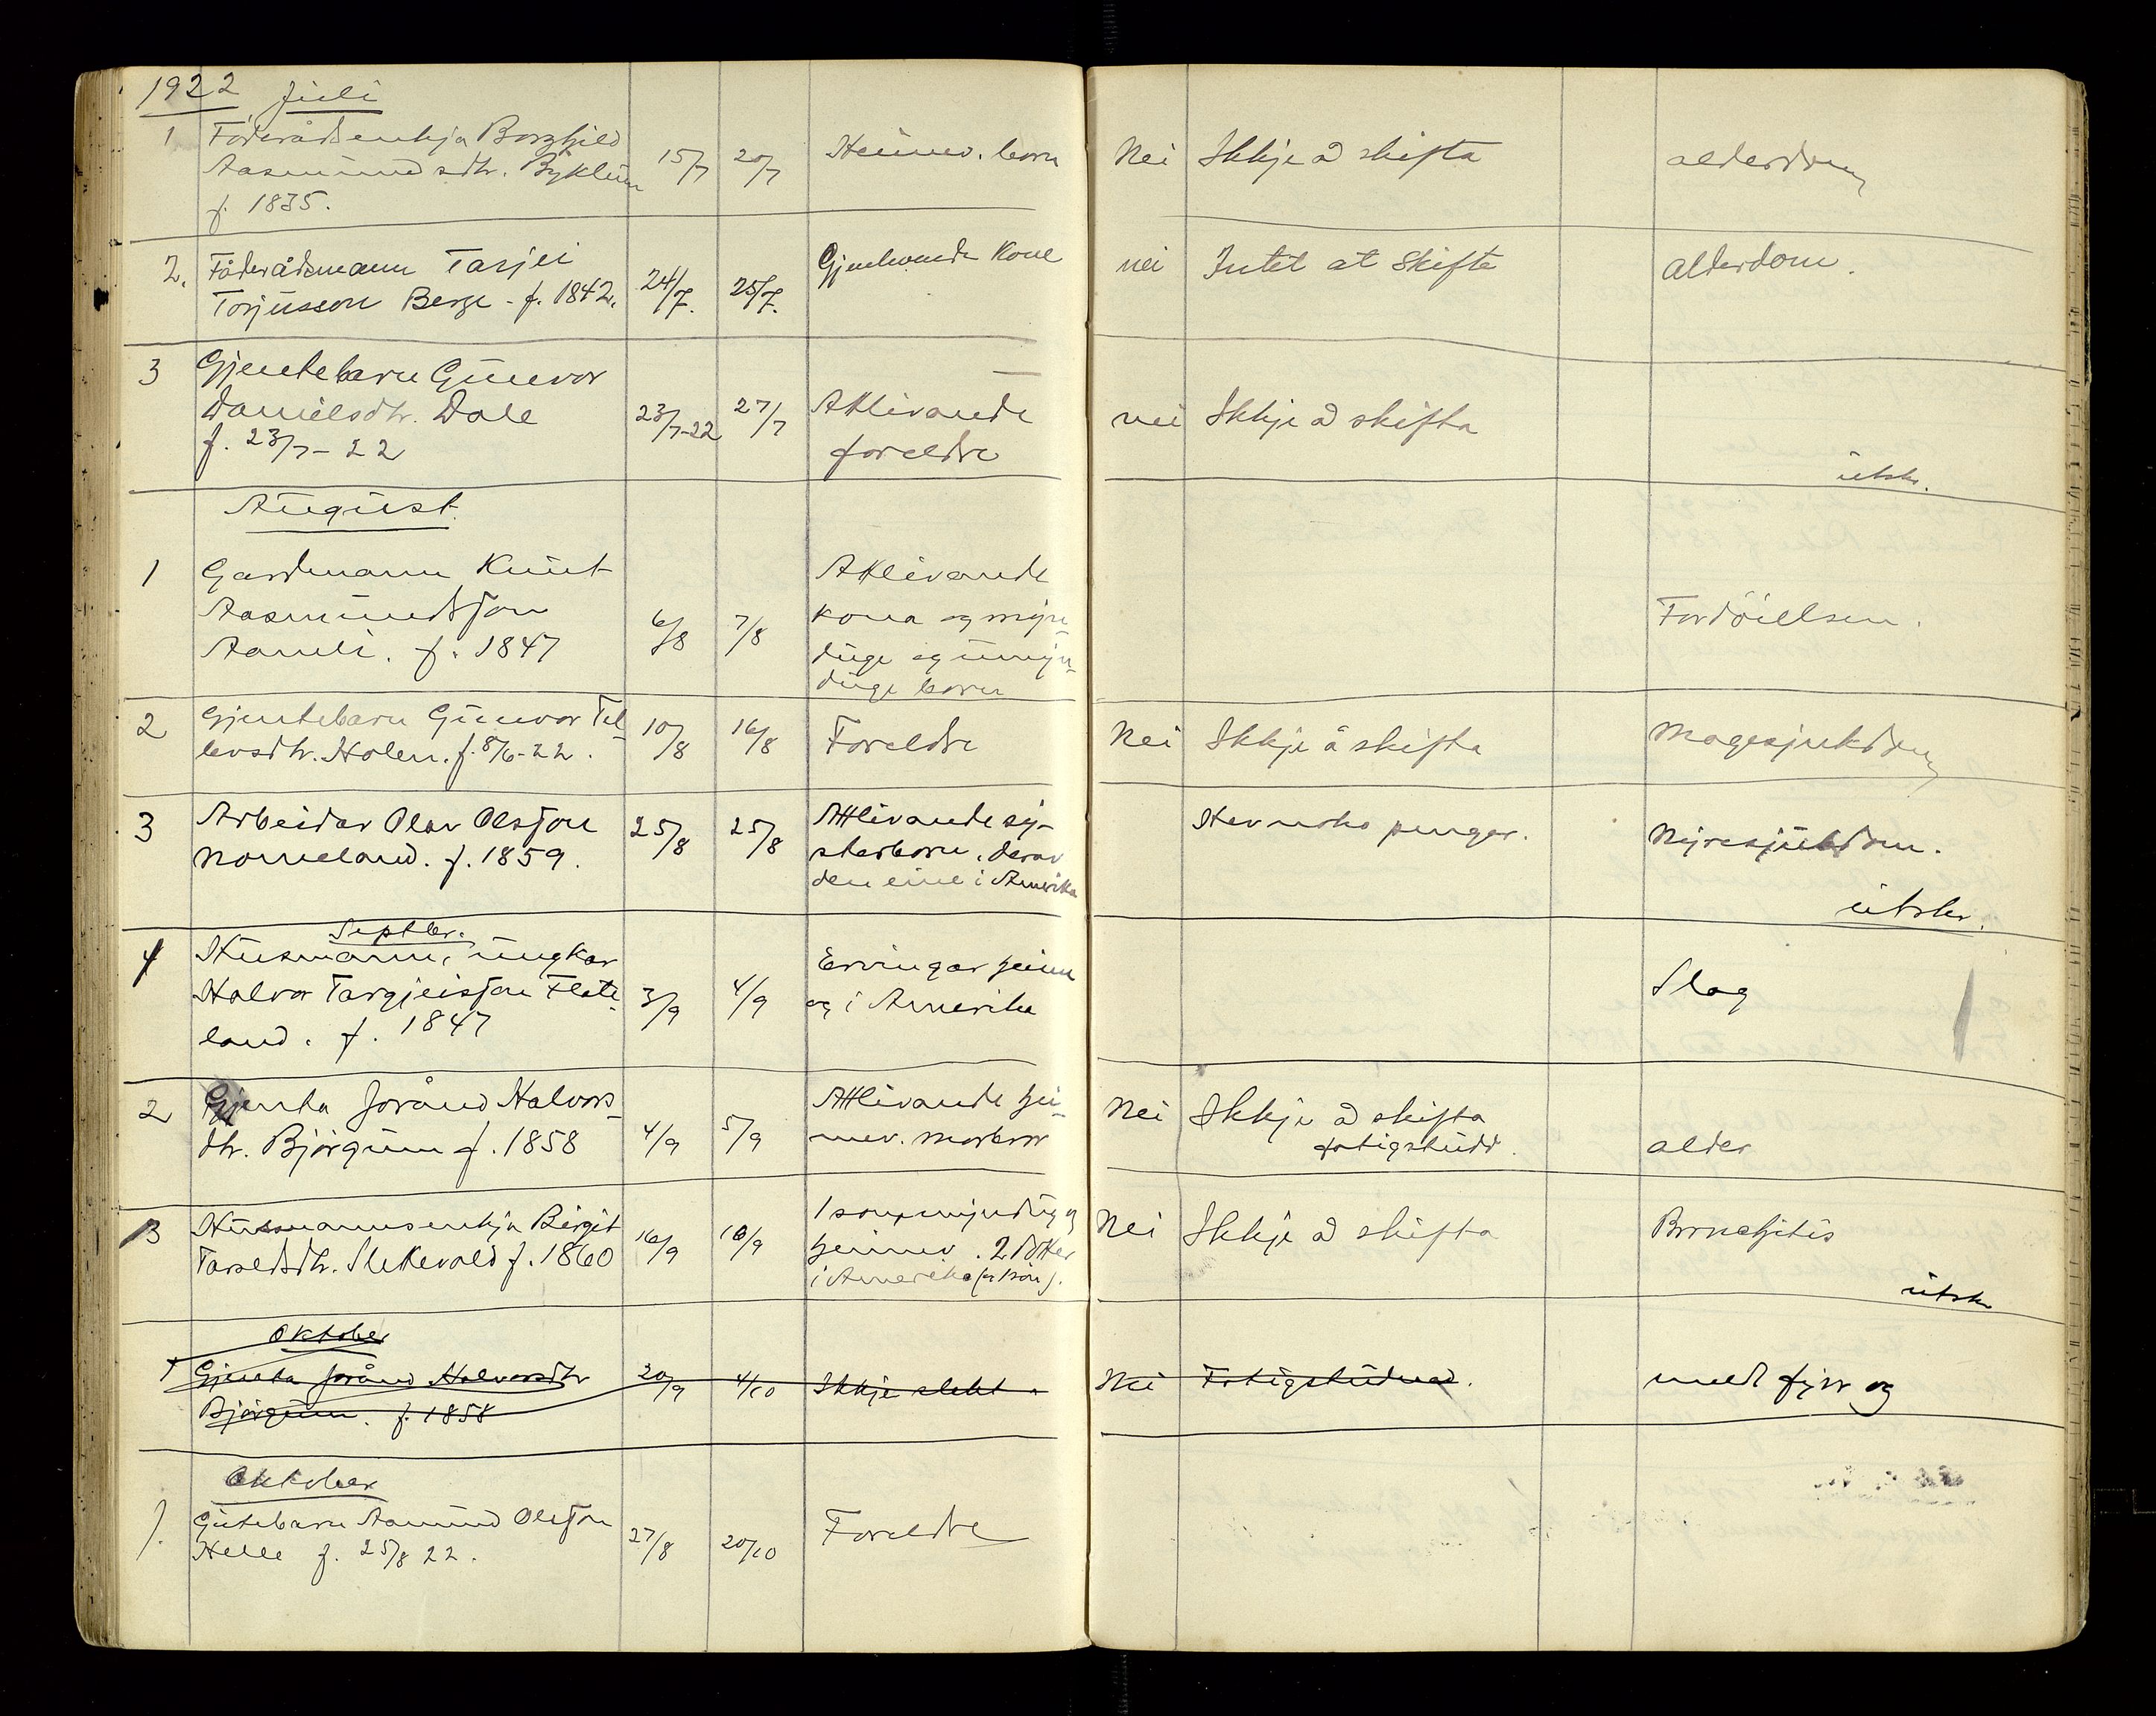 1922 Juli
1 Föderådsenkja Borghild 15/7 20/7 Heimev. born Nei Ikkje å skifta alderdom
Aasmundsdtr. Byklum
f. 1835.
2. Föderådsmann Tarjei 24/7. 25/7. Gjenlevende Kone nei Intet at Skifte Alderdom.
Torjusson Berge - f. 1842.
3 Gjentebarn Gunvor
Danielsdtr. Dale 23/7-22 27/7 Attlivande nei Ikkje å skifta
f. 23/7 - 22 foreldre
utskr.
August
1 Gardmann Knut Attlivande
Aasmundsson 6/8 7/8 kona og myn- Fordöielsen.
Aamli. f. 1847 duge og umyn-
duge born
2 Gjentebarn Gunvor Tel- 10/8 16/8 Foreldre Nei Ikkje å skifta Magesjukdom
levsdtr. Holen. f. 8/6-22.
3 Arbeidar Olav Olsson 25/8 25/8 Attlivande sy- Hev noko pengar. Nyresjukdom.
Nomeland. f. 1859. sterborn, derav
den eine i Amerika
utskr.
Septbr.
1 Husmann, ungkar Ervingar heime Slag
Halvor Targjeisson Flate- 3/9 4/9 og i Amerika
land. f. 1847
2 Gjenta Joránd Halvors- 4/9 5/9 Attlivande hei- Nei Ikkje å skifta
dtr. Björgum f. 1858 mev. morbror fatigstudd. alder
3 Husmannsenkja Birgit 16/9 18/9 1 son, myndug og Nei Ikkje å skifta Bronchitis
Taraldsdtr. Slekevold f. 1860 heimev. 2 døtter
i Amerika
utskr
Oktober
1 Gjenta Joránd Halvorsdtr 20/9 4/10 Ikkje slekt. Nei Fatigstudnad. meldt fyrr og
Björgum. f. 1858
Oktober
1. Gutebarn Aamund Olsson 27/8 20/10 Foreldre
Helle f. 25/8 22.